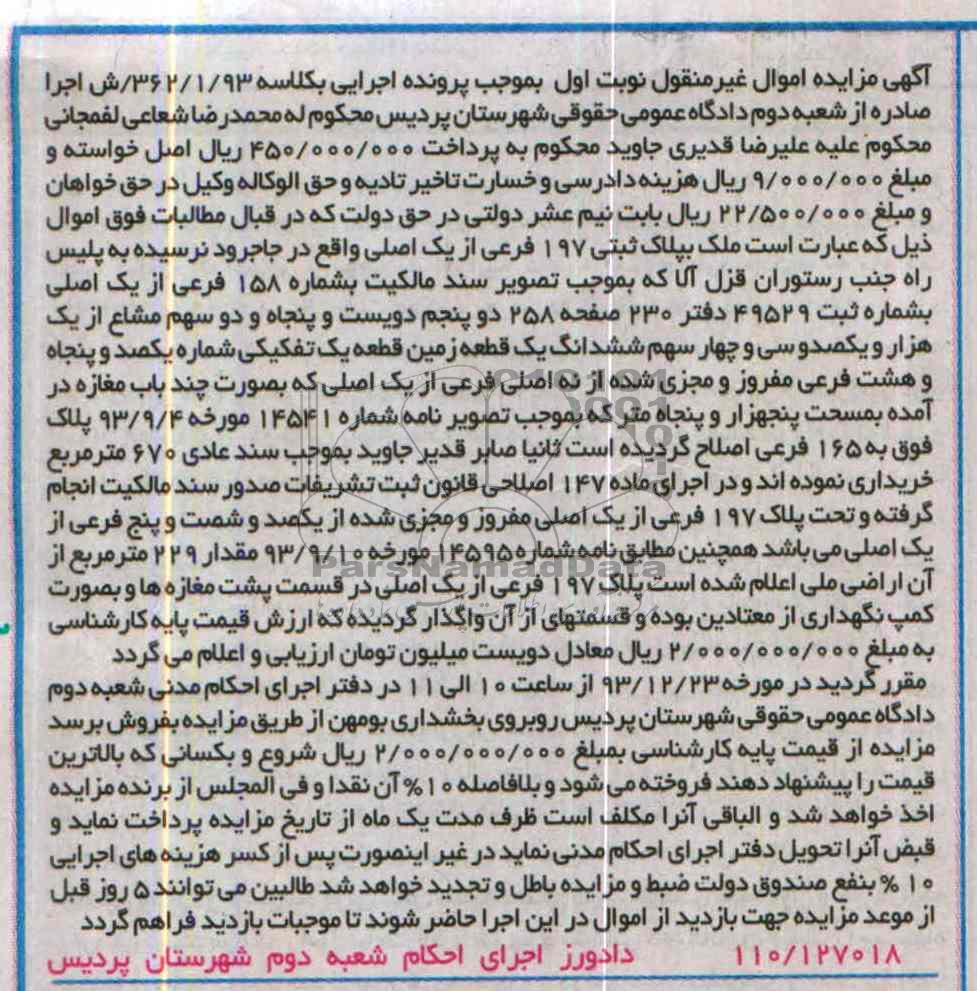 آگهی مزایده اموال غیرمنقول نوبت اول بموجب پرونده اجرایی بکلاسه ۳۶۲/۱/۹۳/ش اجرا
صادره از شعبه دوم دادگاه عمومی حقوقی شهرستان پردیس محکوم له محمدرضا شعاعی لفمجانی
محکوم علیه علیرضا قدیری جاوید محکوم به پرداخت ۴۵۰/۰۰۰/۰۰۰ ریال اصل خواسته و
مبلغ ۹/۰۰۰/۰۰۰ ریال هزینه دادرسی و خسارت تاخیر تادیه و حق الوکاله وکیل در حق خواهان
و مبلغ ۲۲/۵۰۰/۰۰۰ ریال بابت نیم عشر دولتی در حق دولت که در قبال مطالبات فوق اموال
ذیل که عبارت است ملک بپلاک ثبتی ۱۹۷ فرعی از یک اصلی واقع در جاجرود نرسیده به پلیس
راه جنب رستوران قزل آلا که بموجب تصویر سند مالکیت بشماره ۱۵۸ فرعی از یک اصلی
بشماره ثبت ۴۹۵۲۹ دفتر ۲۳۰ صفحه ۲۵۸ دو پنجم دویست و پنجاه و دو سهم مشاع از یک
هزار و یکصدو سی و چهار سهم ششدانگ یک قطعه زمین قطعه یک تفکیکی شماره یکصد و پنجاه
و هشت فرعی مفروز و مجزی شده از نه اصلی فرعی از یک اصلی که بصورت چند باب مغازه در
آمده بمسحت پنجهزار و پنجاه متر که بموجب تصویر نامه شماره ۱۴۵۴۱ مورخه ۹۳/۹/۴ پلاک
فوق به ۱۶۵ فرعی اصلاح گردیده است ثانیا صابر قدیر جاوید بموجب سند عادی ۶۷۰ مترمربع
خریداری نموده اند و در اجرای ماده ۱۴۷ اصلاحی قانون ثبت تشریفات صدور سند مالکیت انجام
گرفته و تحت پلاک ۱۹۷ فرعی از یک اصلی مفروز و مجزی شده از یکصد و شصت و پنج فرعی از
یک اصلی می باشد همچنین مطابق نامه شماره ۱۴۵۹۵ مورخه ۹۳/۹/۱۰ مقدار ۲۲۹ مترمربع از
آن اراضی ملی اعلام شده است پلاک ۱۹۷ فرعی از یک اصلی در قسمت پشت مغازه ها و بصورت
کمپ نگهداری از معتادین بوده و قسمتهای از آن واگذار گردیده که ارزش قیمت پایه کارشناسی
به مبلغ ۲/۰۰۰/۰۰۰/۰۰۰ ریال معادل دویست میلیون تومان ارزیابی و اعلام می گردد
مقرر گردید در مورخه ۹۳/۱۲/۲۳ از ساعت ۱۰ الی ۱۱ در دفتر اجرای احکام مدنی شعبه دوم
دادگاه عمومی حقوقی شهرستان پردیس روبروی بخشداری بومهن از طریق مزایده بفروش برسد
مزایده از قیمت پایه کارشناسی بمبلغ ۲/۰۰۰/۰۰۰/۰۰۰ ریال شروع و بکسانی که بالاترین
قیمت را پیشنهاد دهند فروخته می شود و بلافاصله ۱۰% آن نقدا و فی المجلس از برنده مزایده
اخذ خواهد شد و الباقی آنرا مکلف است ظرف مدت یک ماه از تاریخ مزایده پرداخت نماید و
قبض آنرا تحویل دفتر اجرای احکام مدنی نماید در غیر اینصورت پس از کسر هزینه های اجرایی
۱۰ % بنفع صندوق دولت ضبط و مزایده باطل و تجدید خواهد شد طالبین می توانند ۵ روز قبل
از موعد مزایده جهت بازدید از اموال در این اجرا حاضر شوند تا موجبات بازدید فراهم گردد
۱۱۰/۱۲۷۰۱۸ دادورز اجرای احکام شعبه دوم شهرستان پردیس
ParsNamadData